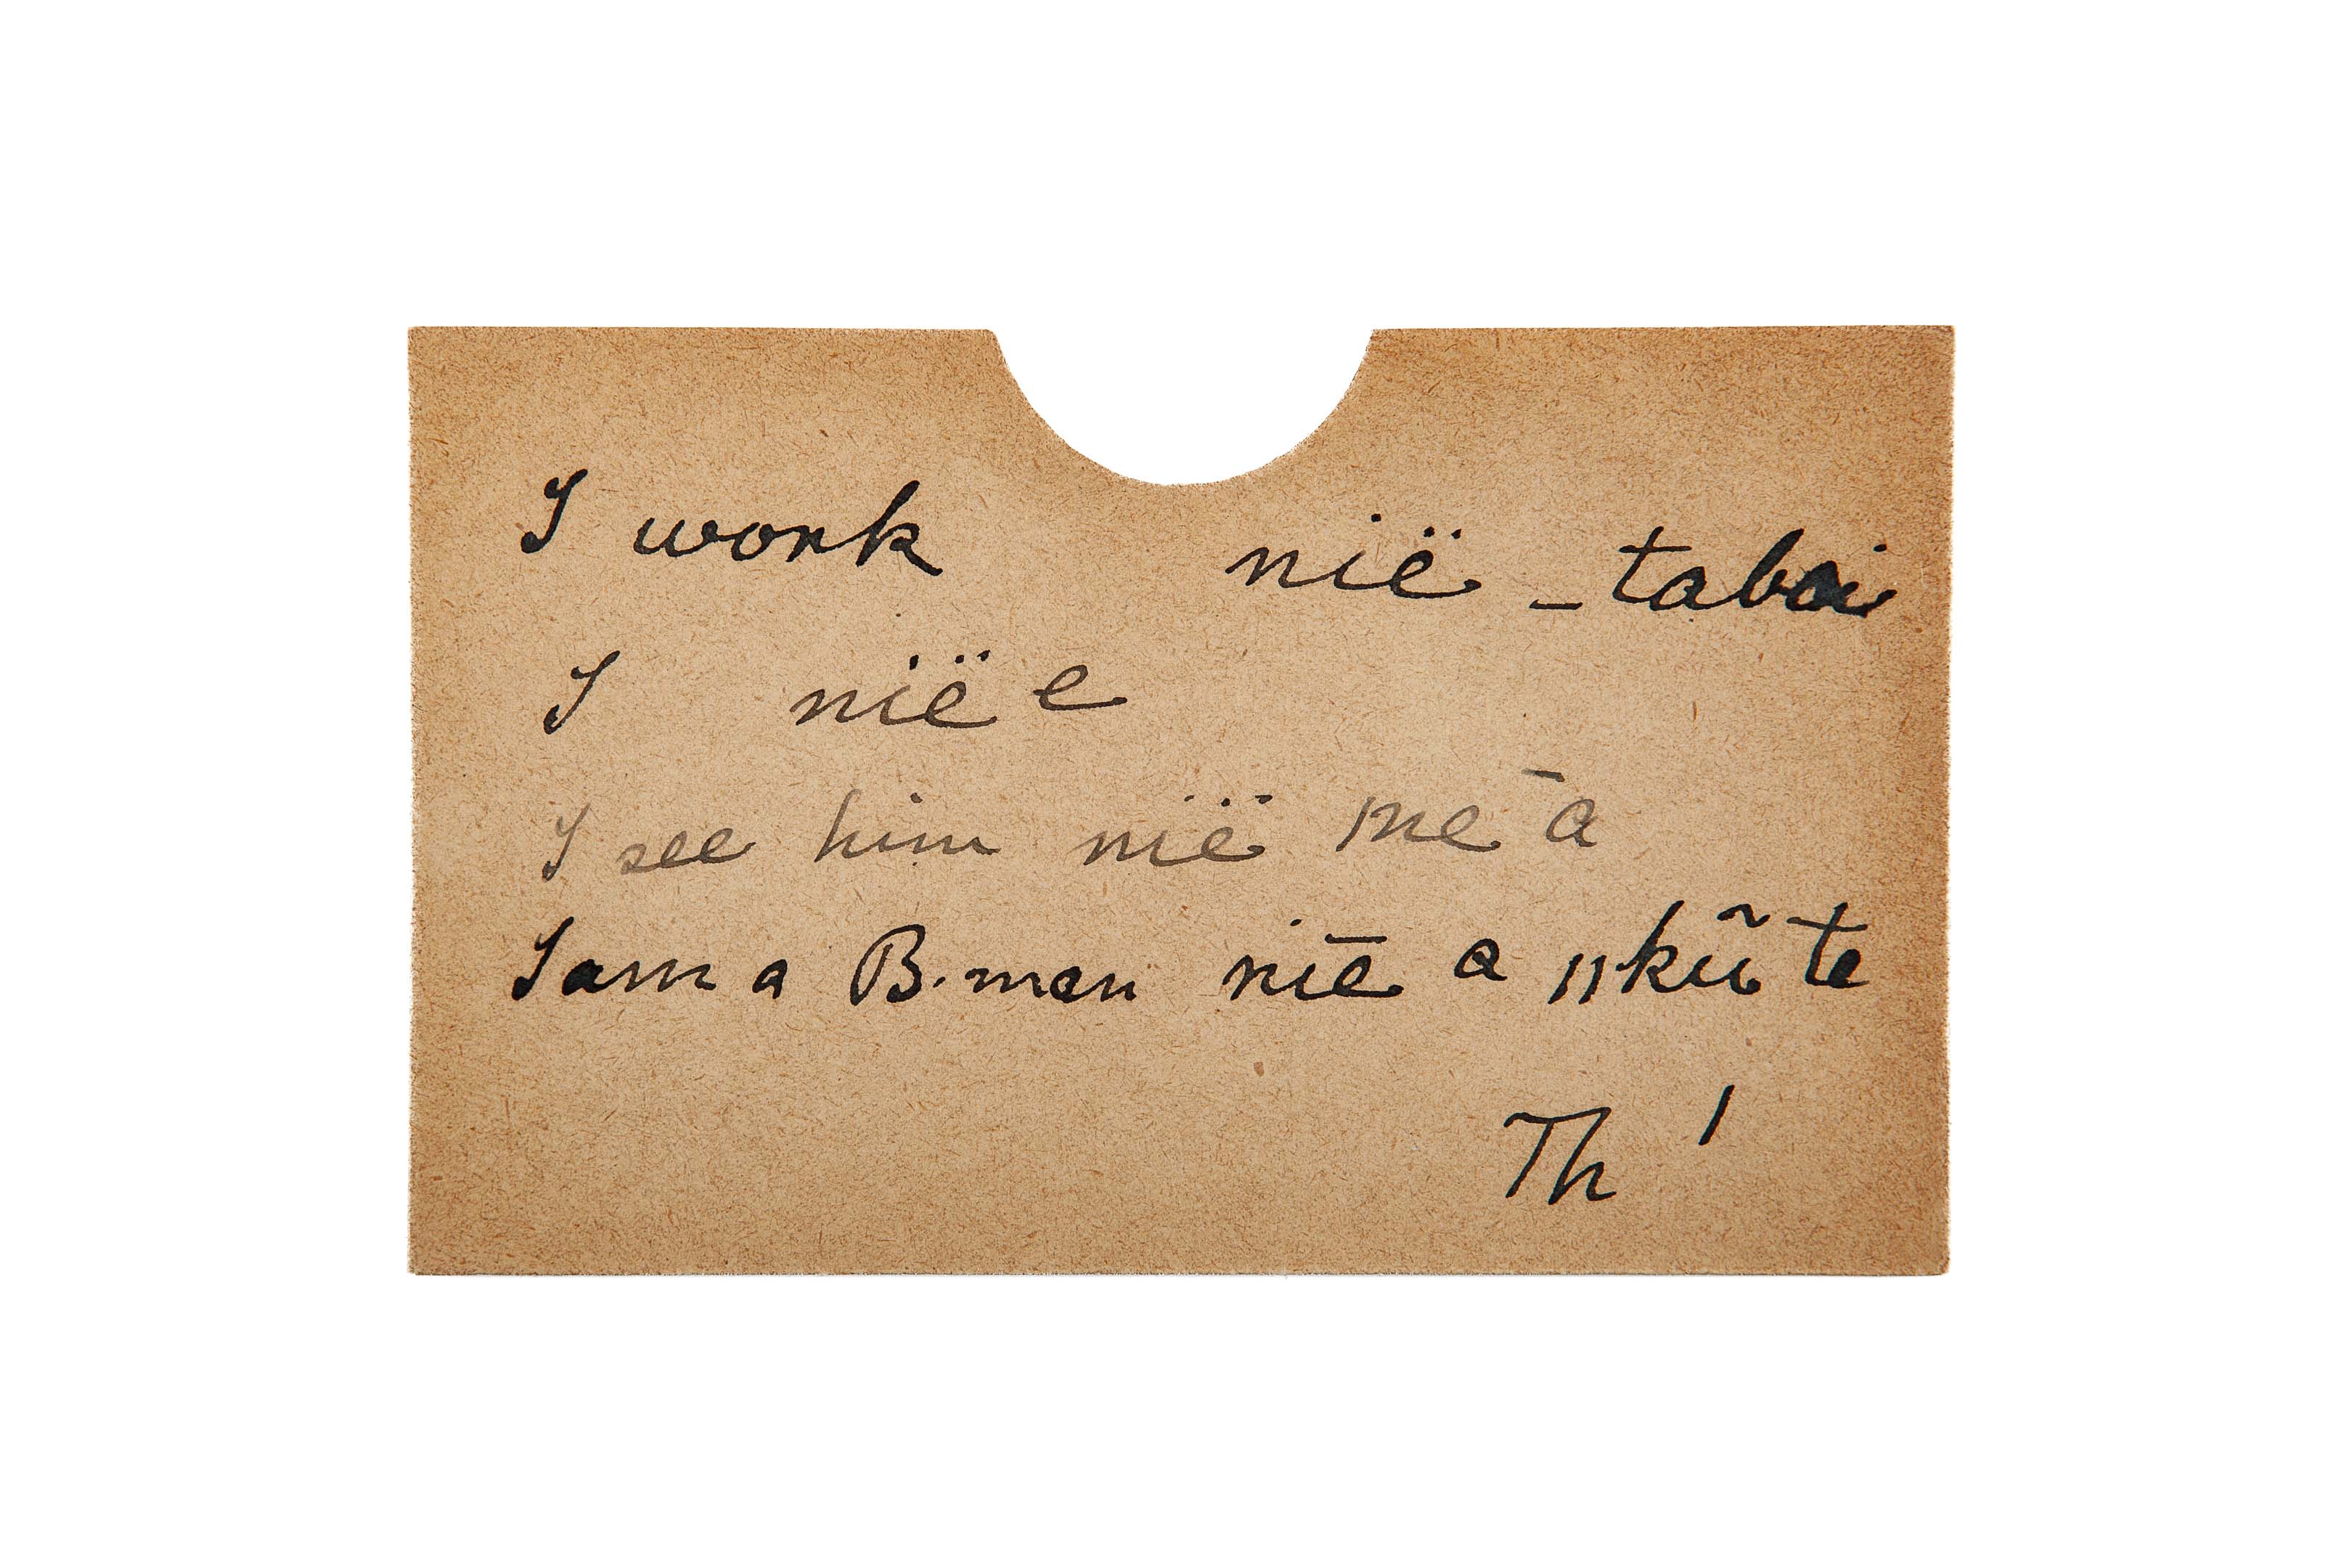 I work nië _ taboi
I nië e
I see him nië me ā
I am a B. man niē a nkũ te
Th '